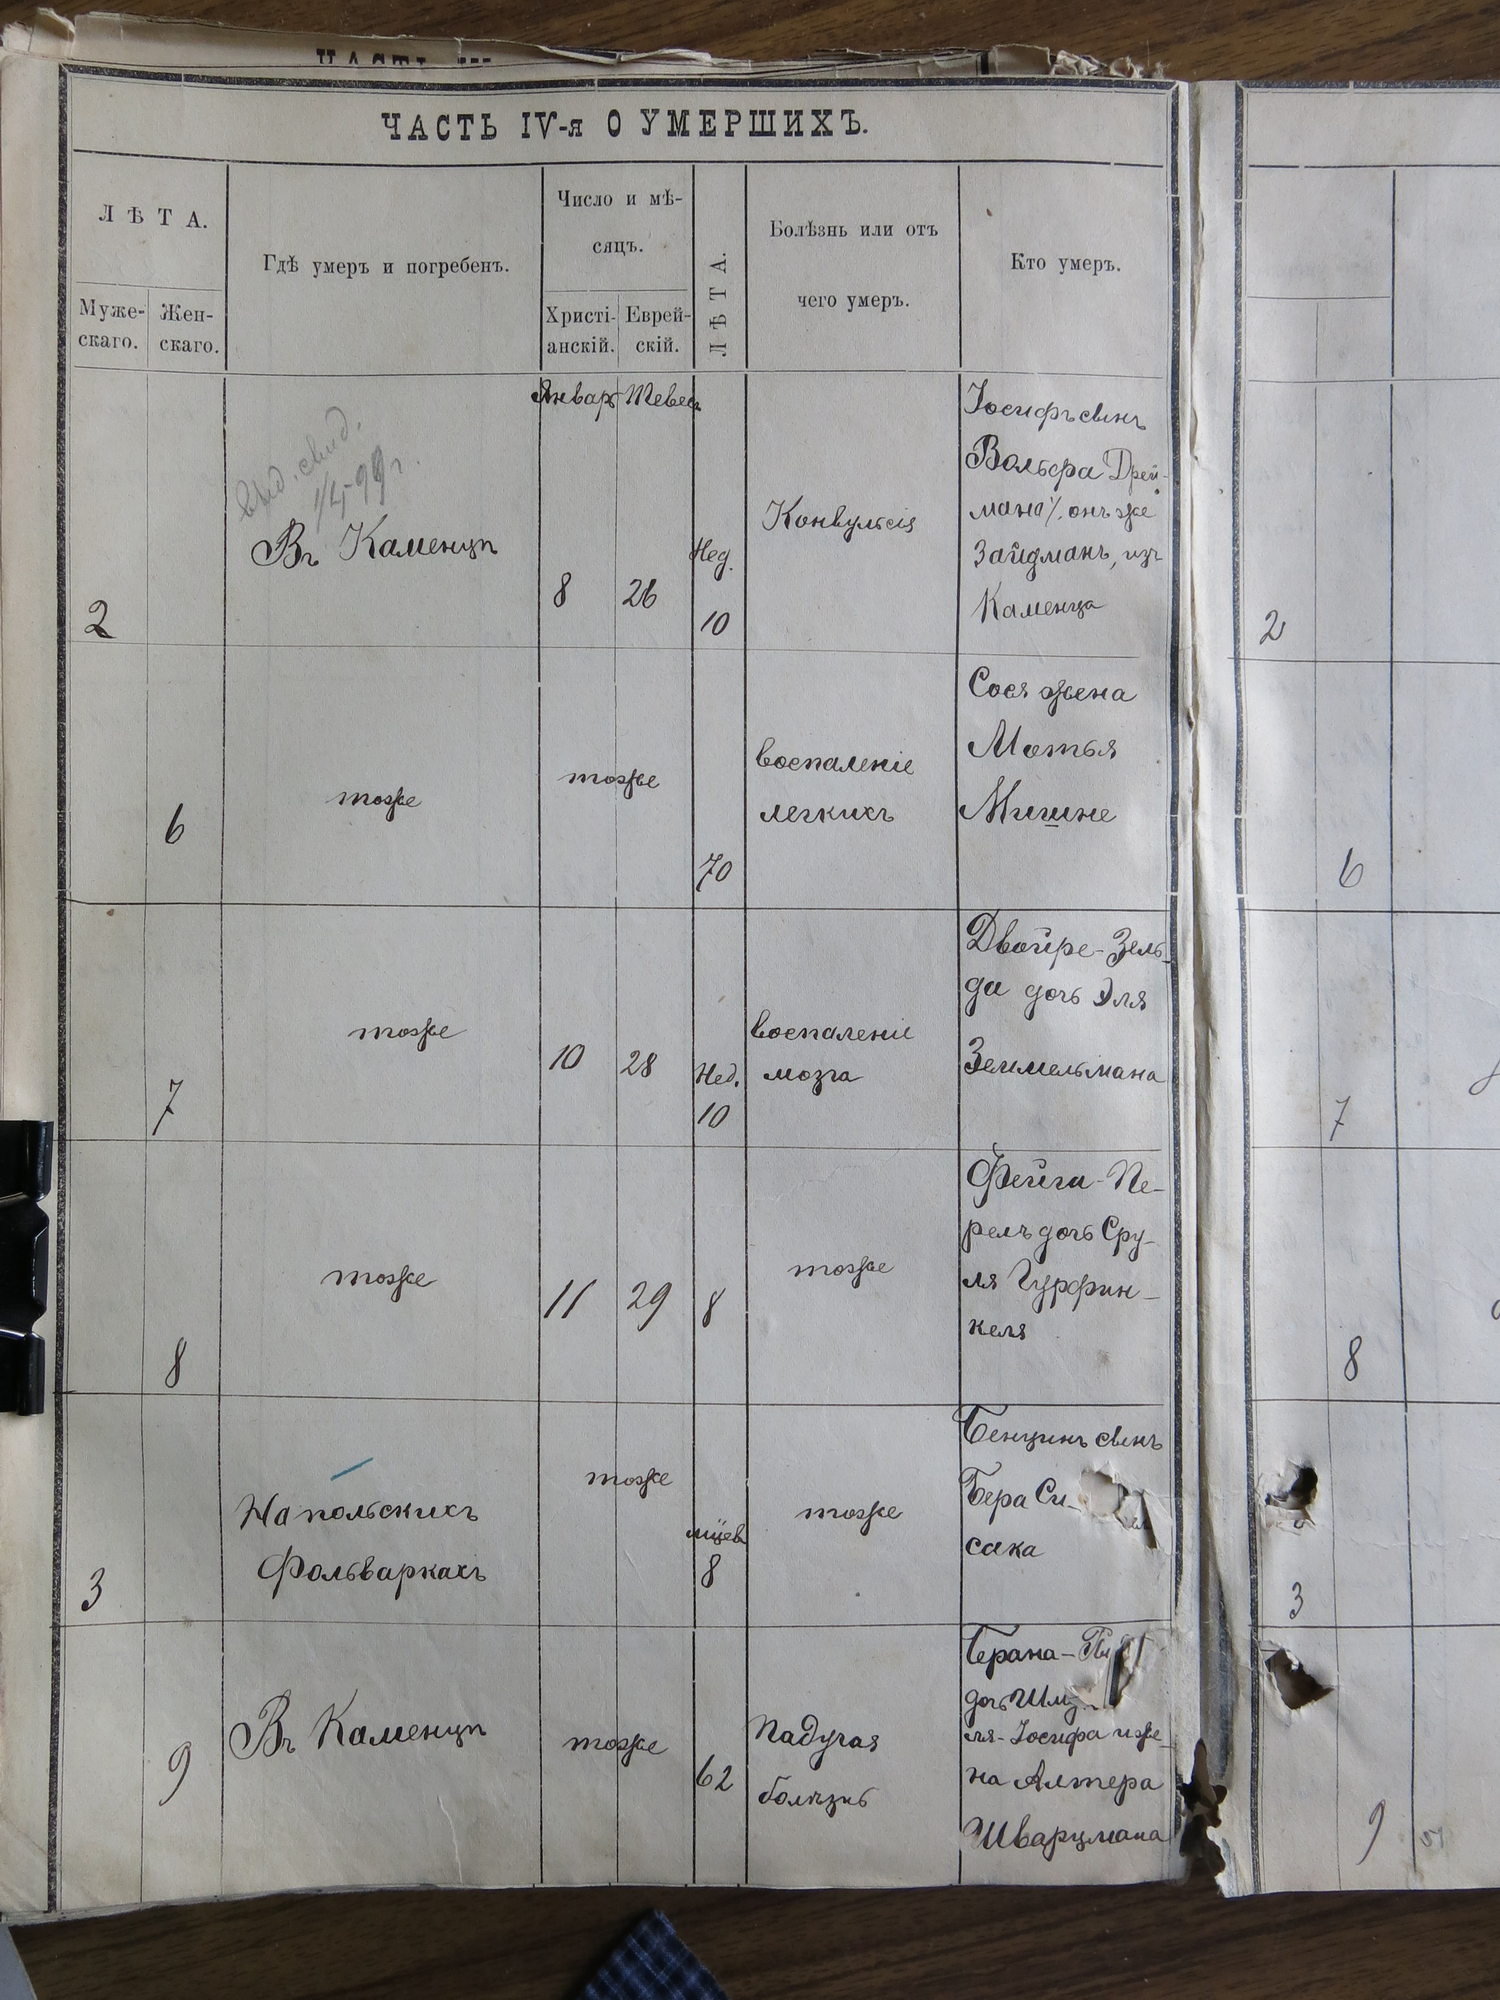 ЧАСТЬ IV-я О УМЕРШИХЪ.
ЛѢТА.
Муже-
скаго.
Жен-
скаго.
Гдѣ умеръ и погребенъ.
Число и мѣ-
сяцъ.
Христі-
анскій.
Еврей-
скій.
ЛѢТА.
Болѣзнь или отъ
чего умеръ.
Кто умеръ.
Январь Тевес
2
Выд. свид.
Въ Каменцѣ
8
26
Нед.
10
Конвульсія
Іосифъ сынъ
Вольфа Дрей-
мана, онъ же
Зайдманъ, изъ
Каменца
2
6
тоже
тоже
70
воспаленіе
легкихъ
Сося жена
Мотья
Мишне
6
7
тоже
10
28
Нед.
10
воспаленіе
мозга
Двойре-Зель-
да дочь Эля
Земмельмана
7
8
тоже
11
29
8
тоже
Фейга-Пе-
релъ дочь Сру-
ля Гурфин-
келя
8
3
На польскихъ
Фольваркахъ
тоже
мцев
8
тоже
Бенционъ сынъ
Бера Си-
сака
3
9
Въ Каменцѣ
тоже
62
падучая
болѣзнь
Брана-
дочь Шму
ля-Іосифа и же-
на Алтера
Шварцмана
9